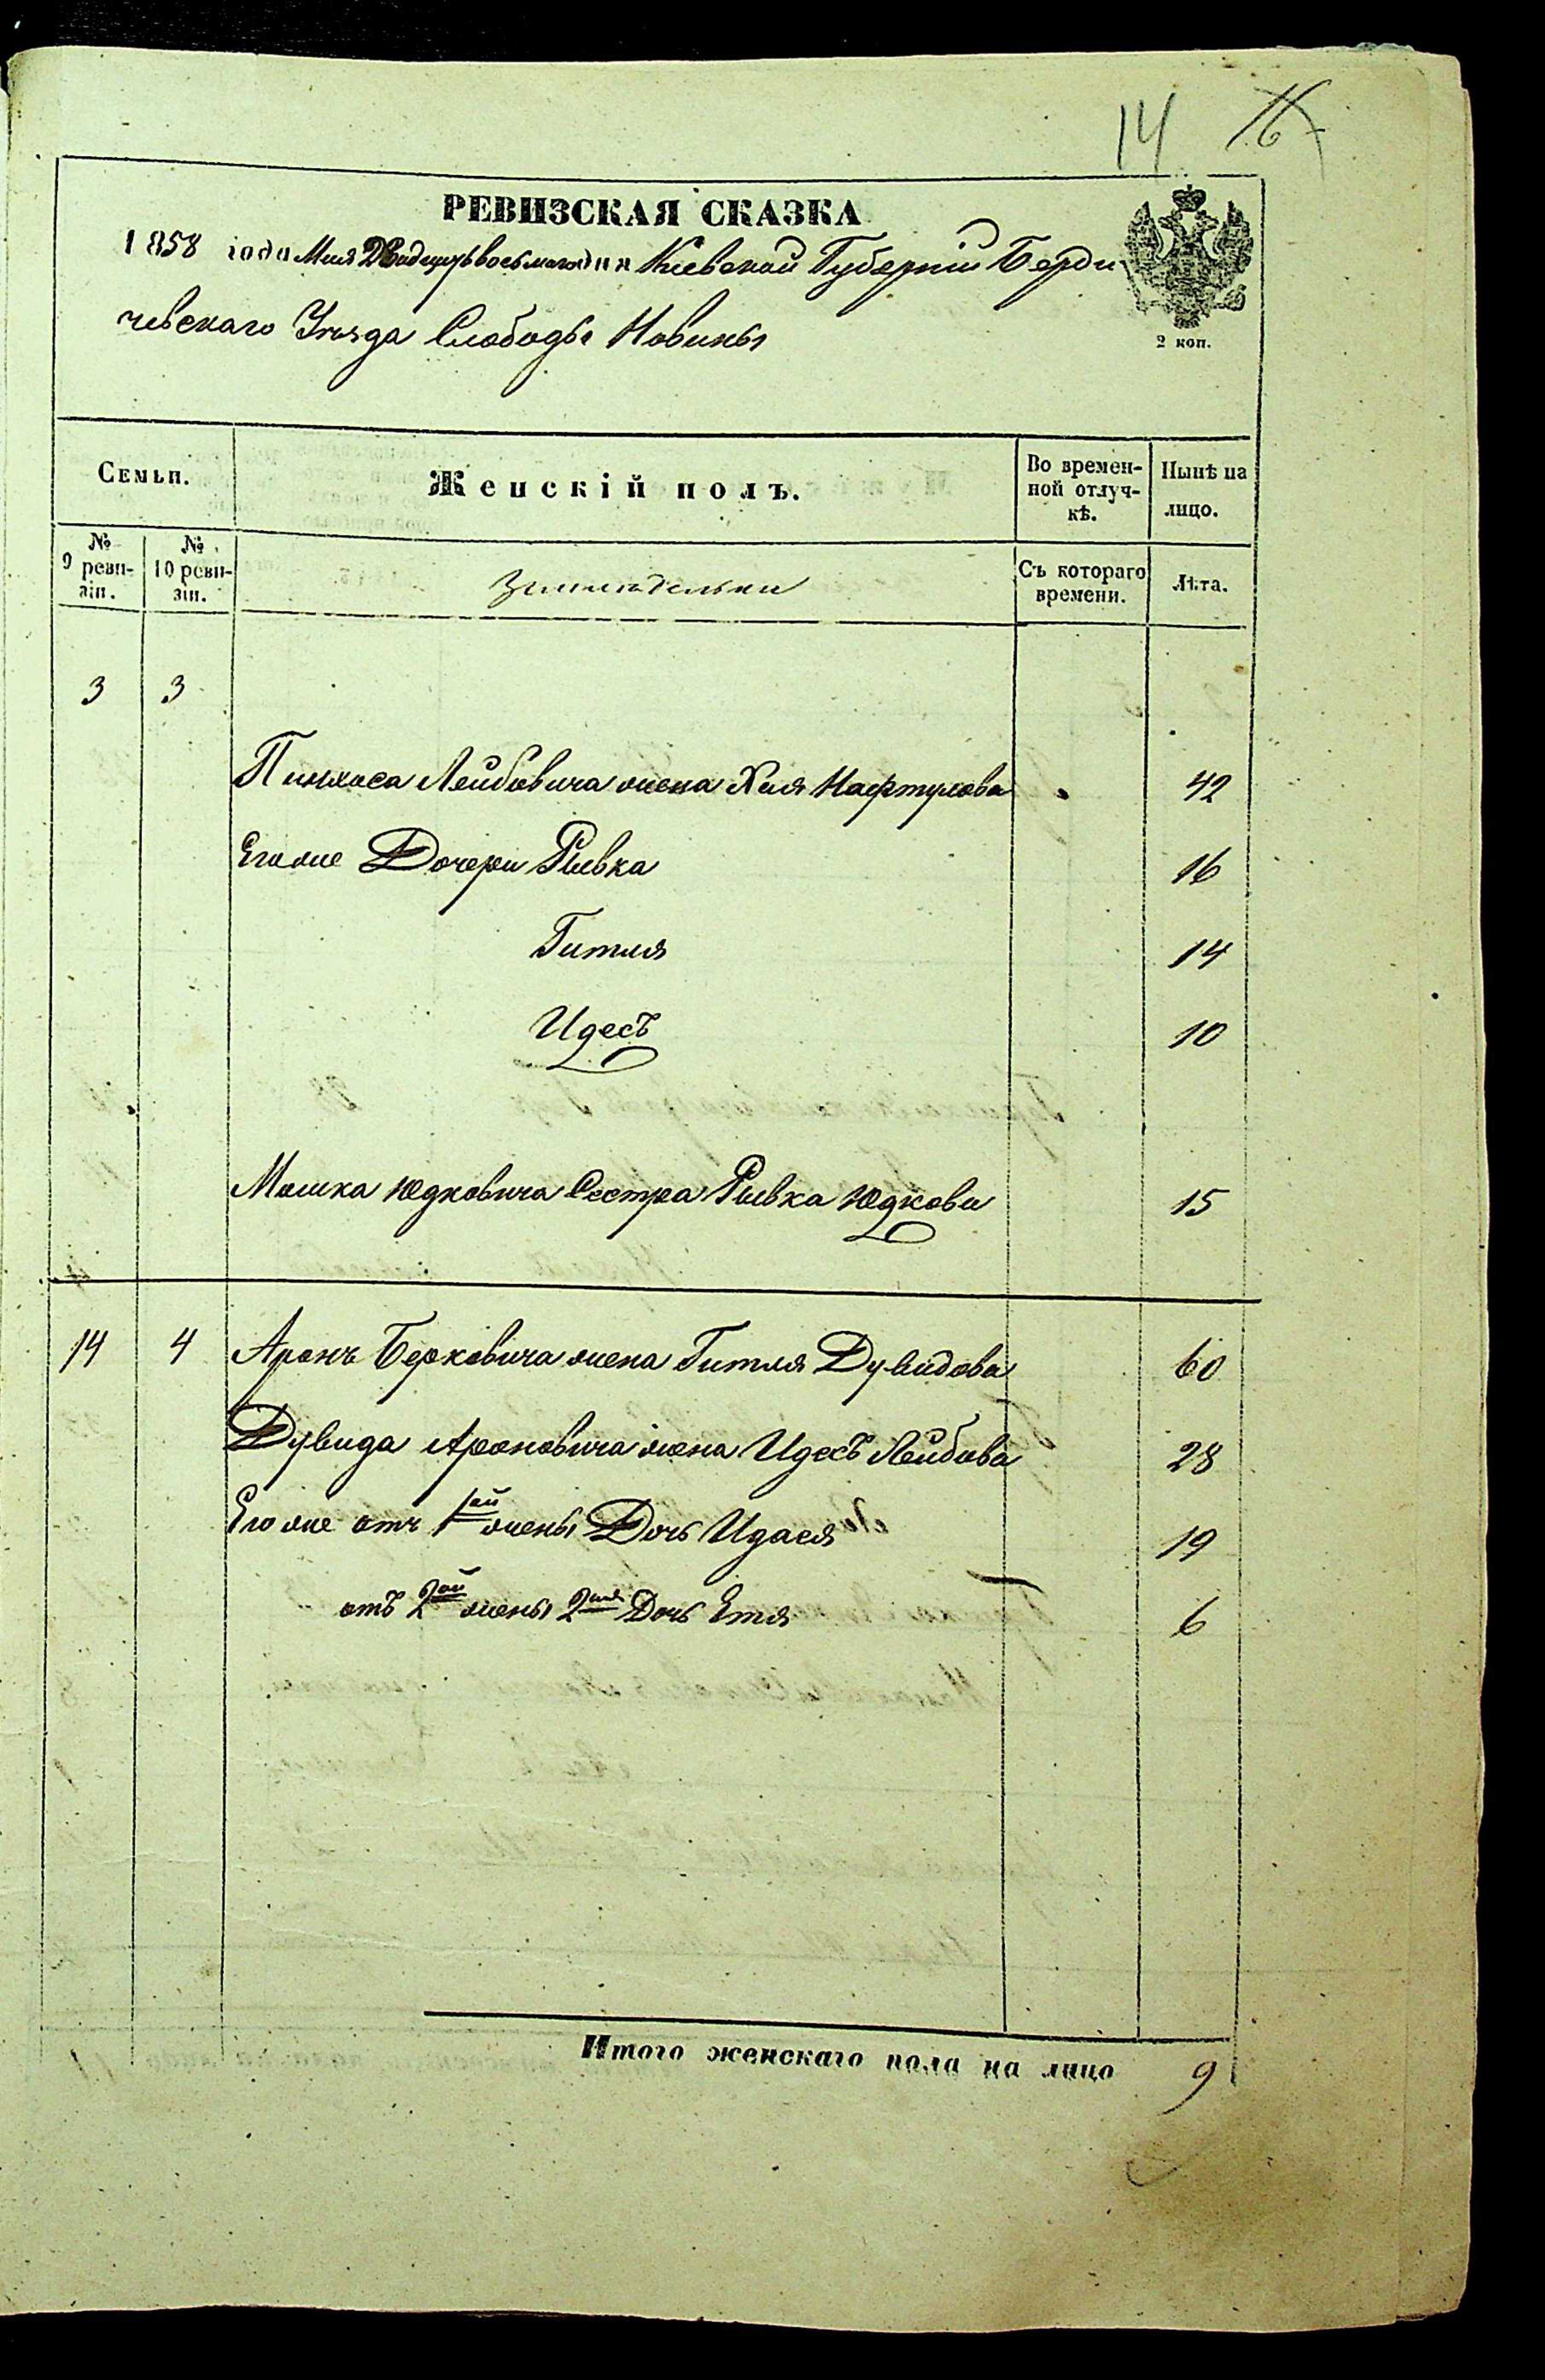 14 16
РЕВИЗСКАЯ СКАЗКА
1858 года Мая Двадцать восьмаго дня Кіевской Губерніи Берди
чевскаго Уѣзда Слободы Новины
2 коп.
Семьи.
Женскій полъ.
Во времен-
ной отлуч-
кѣ.
Нынѣ на
лицо.
№
9 реви-
зіи.
№
10 реви-
зіи.
Земледельки
Съ котораго
времени.
Лѣта.
3 3
Пинхаса Лейбовича жена Хая Нафтулова 42
Его же Дочери Рывка 16
Гитля 14
Идесъ 10
Мошка Юдковича Сестра Рывка Юдкова 15
14 4 Аронъ Берковича жена Гитля Дувидова 60
Дувида Ароновича жена Идесъ Лейбова 28
Его же отъ 1ой жены Дочь Идася 19
отъ 2ой жены 2ая Дочь Етя 6
Итого женскаго пола на лицо 9